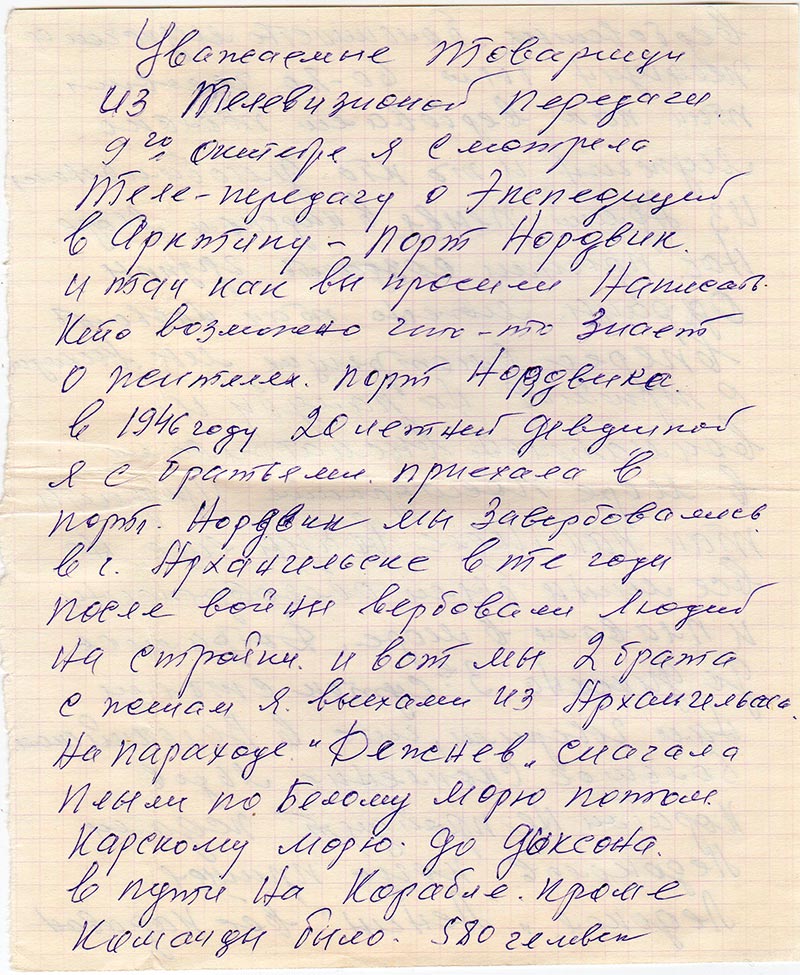 Уважаемые товарищи
из телевизионой передачи.
9го октября я смотрела
теле-передачу о Экспедиций
в Арктику - порт Нордвик.
и так как вы просили написать.
Кто возможно что-то знает
о жителях. порт Нордвика.
в 1946 году 20 летней девушкой
я с братьями. приехала в
порт. Нордвик мы завербовались
в г. Архангельске в те годы
после войны вербовали людей
на стройки. и вот мы 2 брата
с женам я. выехали из Архангельска.
на параходе "Дежнев" сначала
плыли по Белому морю потом.
Карскому морю. до Диксона.
в пути на Корабле. кроме
команды было. 580 человек